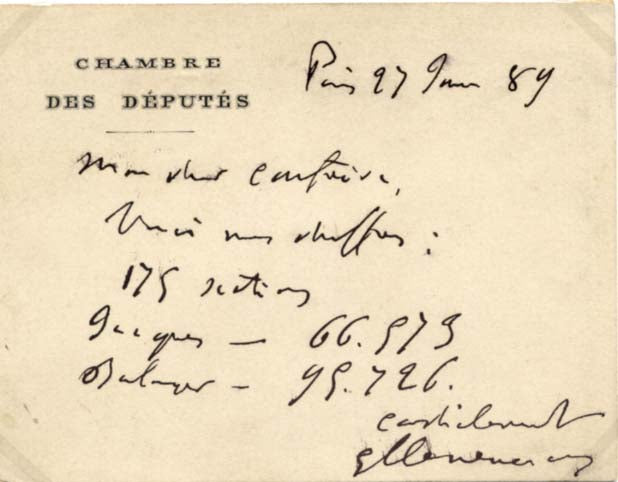 CHAMBRE
DES DÉPUTÉS
Paris 27 Janv 89
Mon cher confrère,
Voici nos chiffres :
175 sections
Jacques — 66.573
Boulanger — 95.726.
cordialement
GClemenceau